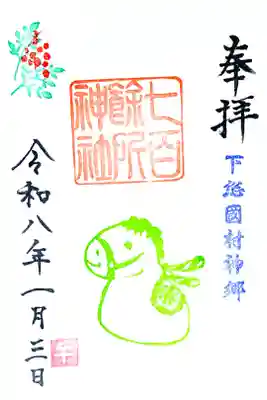 奉拝
下総國村神郷
七百
餘所
神社
令和八年一月三日
午